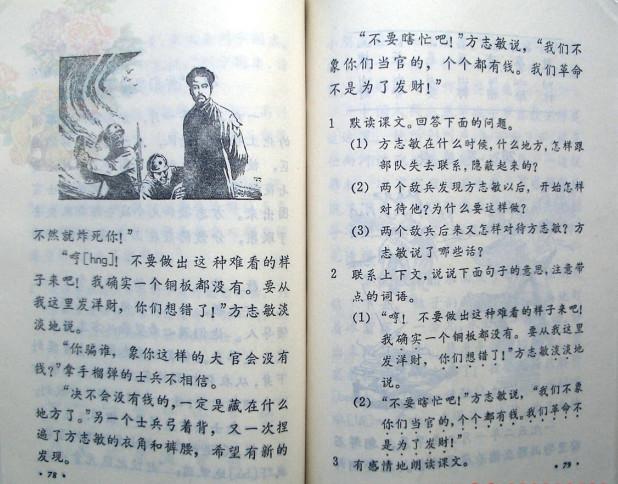 不然就炸死你！”
“哼[hng]！不要做出这种难看的样
子来吧！我确实一个铜板都没有。要从
我这里发洋财，你们想错了！”方志敏淡
淡地说。
“你骗谁，象你这样的大官会没有
钱？”拿手榴弹的士兵不相信。
“决不会没有钱的，一定是藏在什么
地方了。”另一个士兵弓着背，又一次捏
遍了方志敏的衣角和裤腰，希望有新的
发现。
·78·
“不要瞎忙吧！”方志敏说，“我们不
象你们当官的，个个都有钱。我们革命
不是为了发财！”
1 默读课文。回答下面的问题。
(1) 方志敏在什么时候，什么地方，怎样跟
部队失去联系，隐蔽起来的？
(2) 两个敌兵发现方志敏以后，开始怎样
对待他？为什么要这样做？
(3) 两个敌兵后来又怎样对待方志敏？方
志敏说了哪些话？
2 联系上下文，说说下面句子的意思，注意带
点的词语。
(1) “哼！不要做出这种难看的样子来吧！
我确实一个铜板都没有。要从我这里
发洋财，你们想错了！”方志敏淡淡地
说。
(2) “不要瞎忙吧！”方志敏说，“我们不象
你们当官的，个个都有钱。我们革命不
是为了发财！”
3 有感情地朗读课文。
·79·